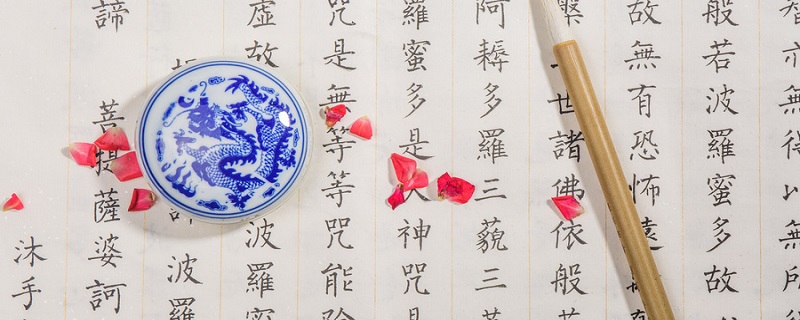 智亦無得以無所
般若波羅蜜多故
故無有恐怖遠
槃三世諸佛依般若
阿耨多羅三藐三
羅蜜多是大神咒是
咒是無等等咒能除
虛故 波羅蜜
波羅
諦 菩提薩婆訶
沐手